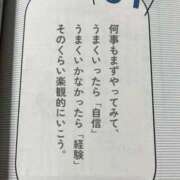 何事もまずやってみて、
うまくいったら「自信」
うまくいかなかったら「経験」
そのくらい楽観的にいこう。